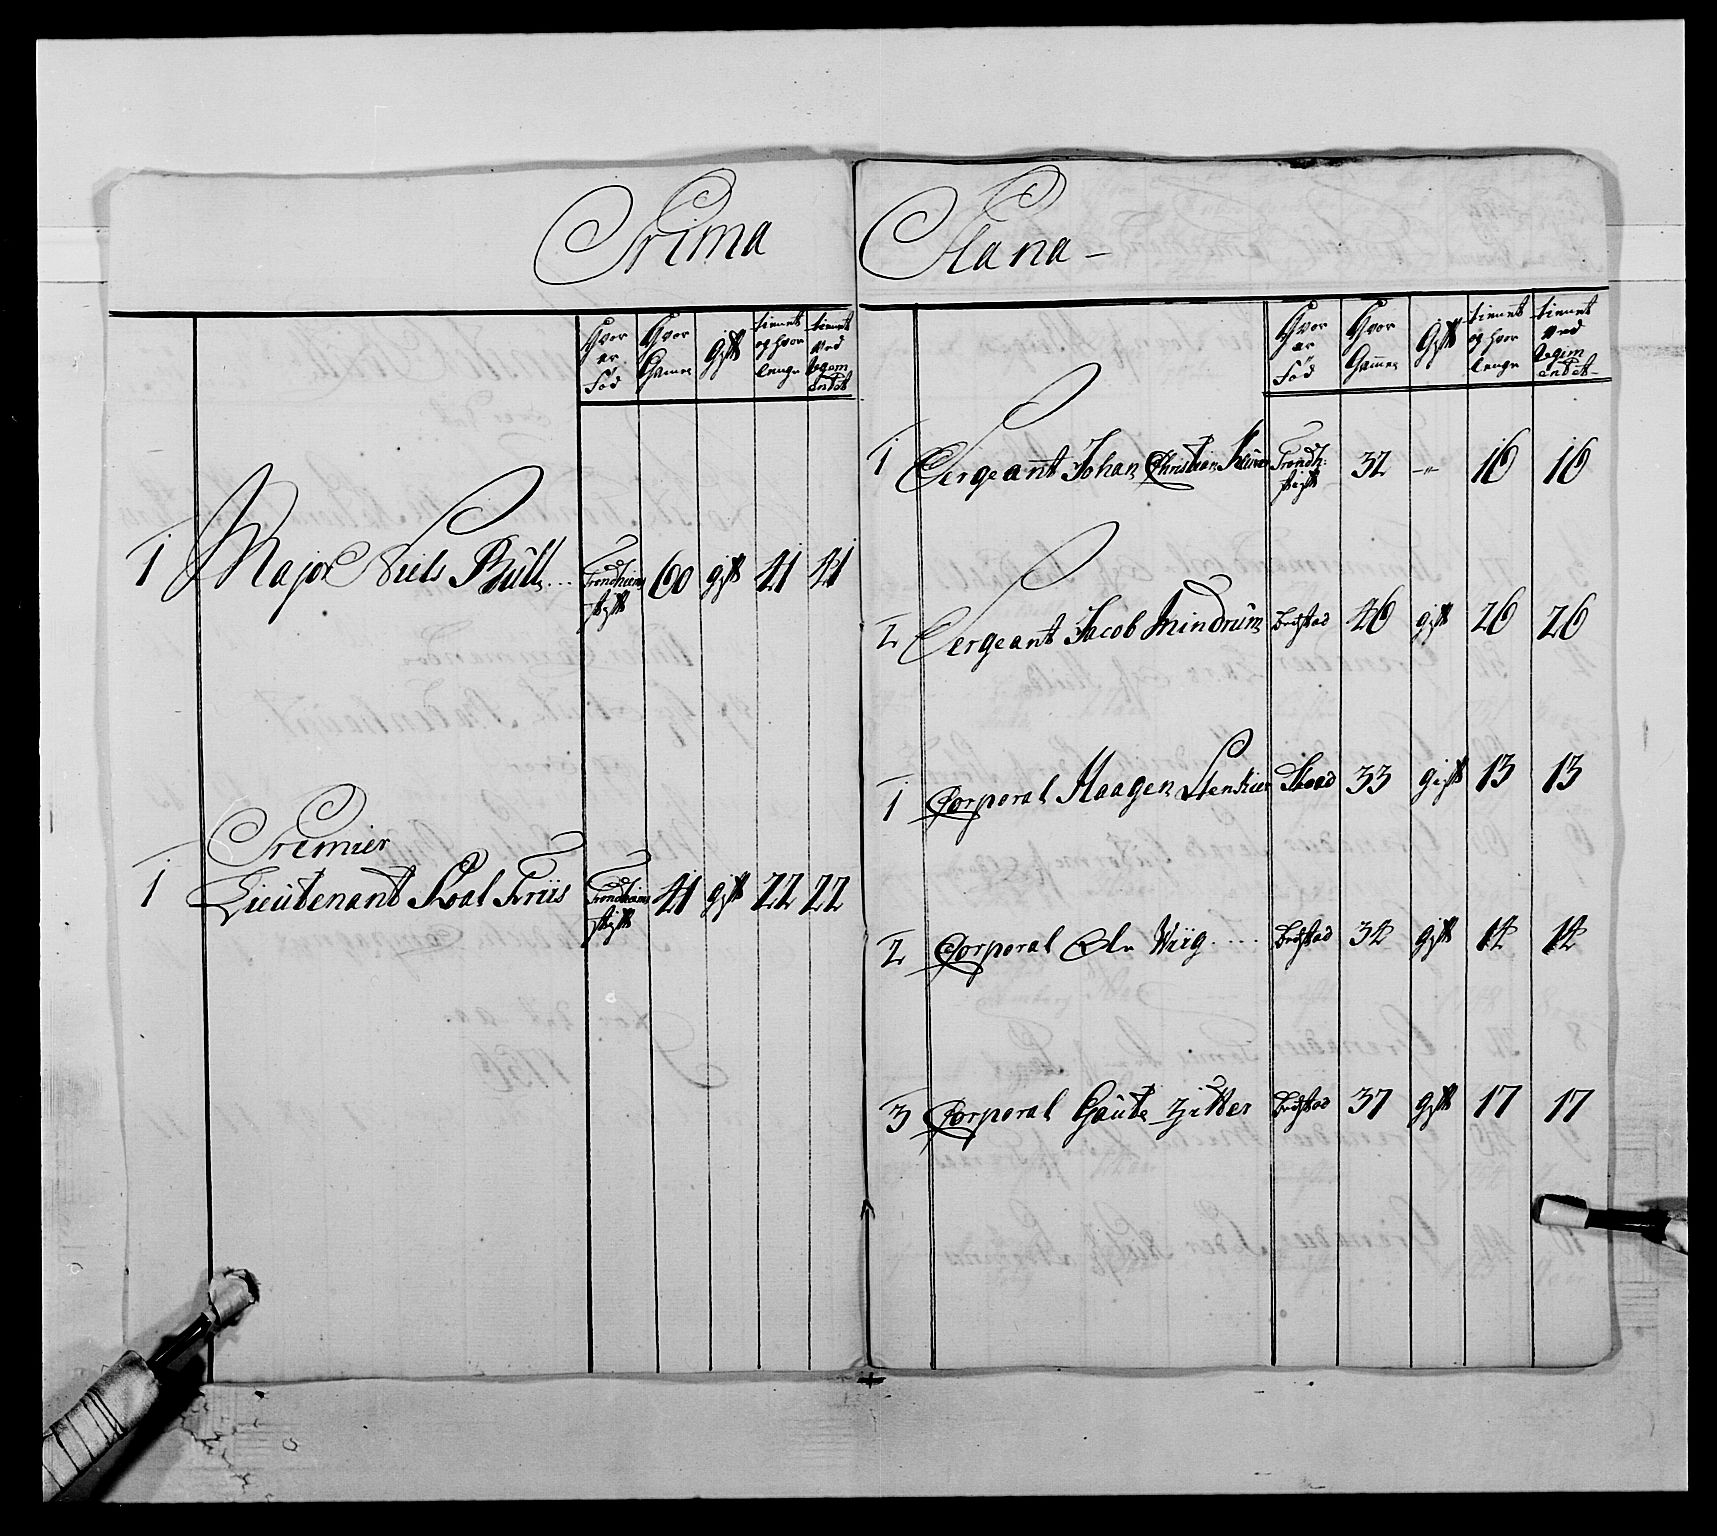 Prima Plana -
Hvor er Fød
Hvor Gammel
Gift
tiennet og hvor lenge
tiennet ved Regimendet
1 Major Niels Büll... Trondhiems stift 60 gift 41 41
Premier
1 Lieütenant Roal Friis Trondhiems stift 41 gift 22 22
Hvor er Fød
Hvor Gammel
Gift
tiennet og hvor lenge
tiennet ved Regimendet-
1 Sergeant Johan Christian Trondh: stift 32 -"- 16 16
2 Sergeant Jacob Mindrüm Bedstad 46 gift 26 26
1 Corporal Haagen 33 gift 13 13
2 Corporal Ole Wiig.... Bedstad 34 gift 14 14
3 Corporal Gaüte Zitter Bedstad 37 gift 17 17